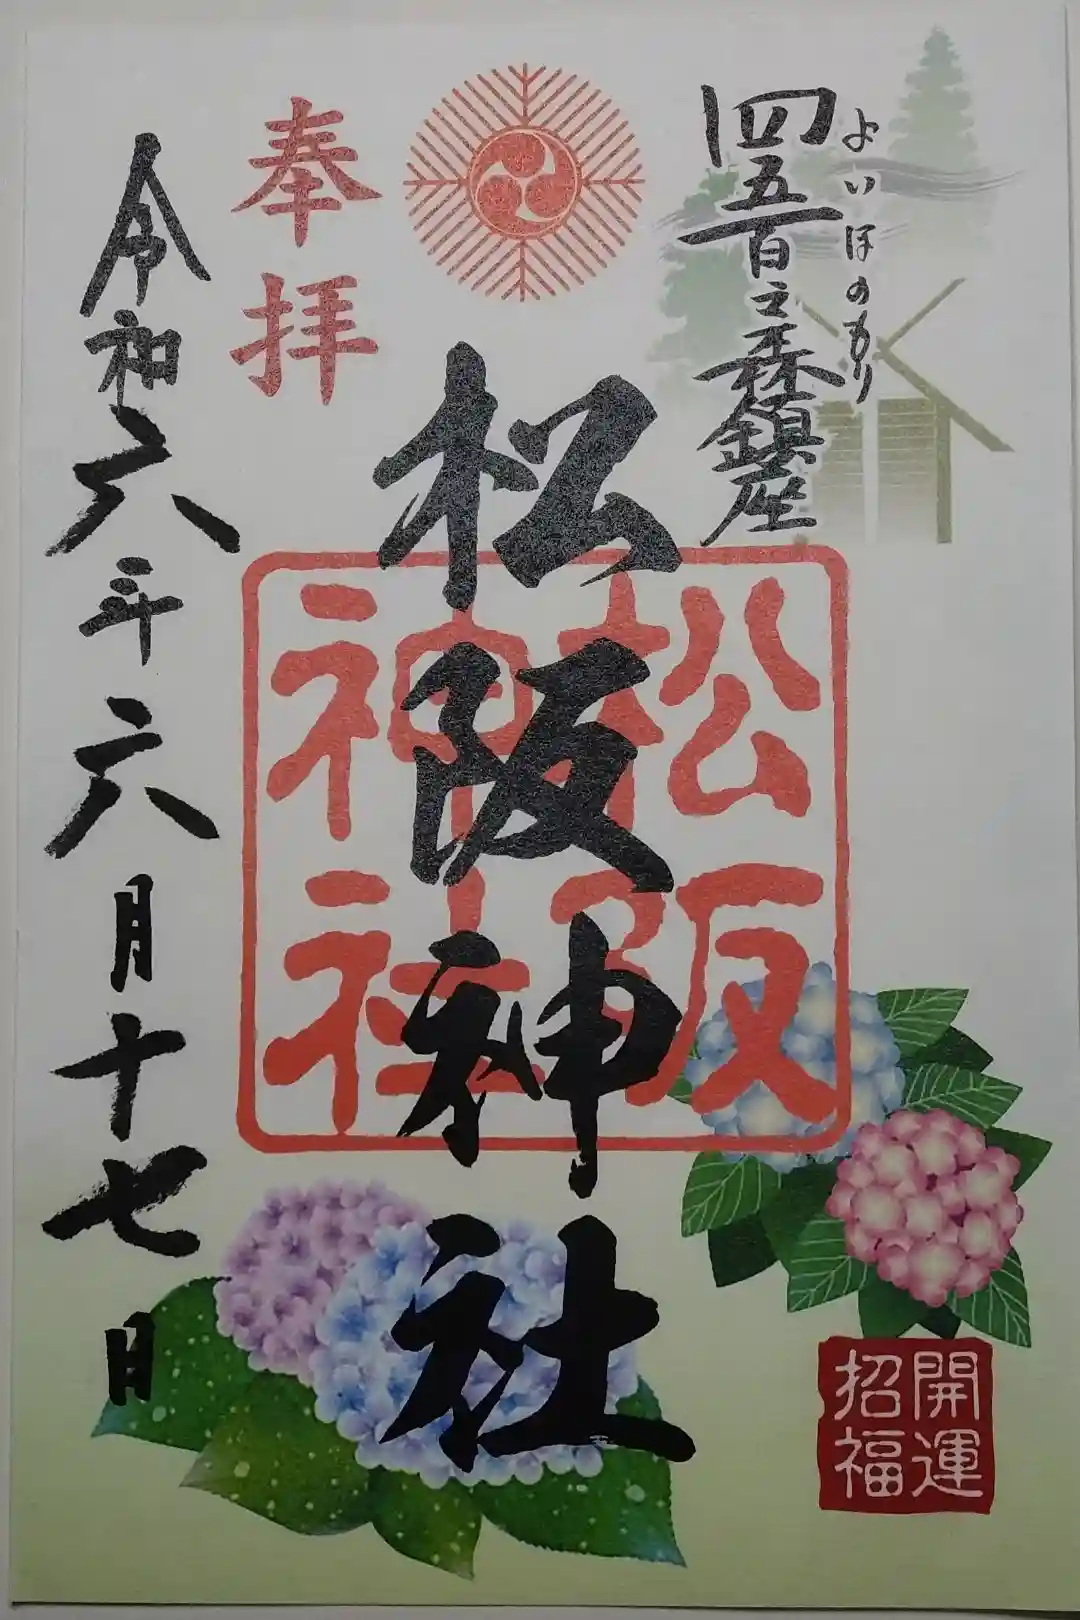 四五百之森鎮座
よいほのもり
奉拝
松阪神社
松阪
神社
令和六年六月十七日
開運
招福